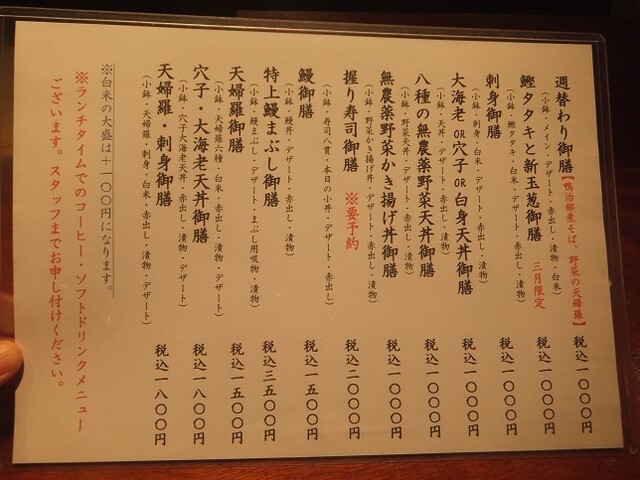 週替わり御膳【鴨治部煮そば、野菜の天婦羅】 税込一〇〇〇円
(小鉢・メイン・デザート・赤出し・漬物・白米)
鰹タタキと新玉葱御膳 三月限定 税込一〇〇〇円
(小鉢・鰹タタキ・白米・デザート・赤出し・漬物)
刺身御膳 税込一〇〇〇円
(小鉢・刺身・白米・デザート・赤出し・漬物)
大海老 OR 穴子 OR 白身天丼御膳 税込一〇〇〇円
(小鉢・天丼・デザート・赤出し・漬物)
八種の無農薬野菜天丼御膳 税込一〇〇〇円
(小鉢・野菜天丼・デザート・赤出し・漬物)
無農薬野菜かき揚げ丼御膳 税込一〇〇〇円
(小鉢・野菜かき揚げ丼・デザート・赤出し・漬物)
握り寿司御膳 ※要予約 税込二〇〇〇円
(小鉢・寿司八貫・本日の小丼・デザート・赤出し)
鰻御膳 税込一五〇〇円
(小鉢・鰻丼・デザート・赤出し・漬物)
特上鰻まぶし御膳 税込三五〇〇円
(小鉢・鰻まぶし・デザート・まぶし用吸物・漬物)
天婦羅御膳 税込一五〇〇円
(小鉢・天婦羅六種・白米・赤出し・漬物・デザート)
穴子・大海老天丼御膳 税込一八〇〇円
(小鉢・穴子大海老天丼・赤出し・漬物・デザート)
天婦羅・刺身御膳 税込一八〇〇円
(小鉢・天婦羅・刺身・白米・赤出し・漬物・デザート)
※白米の大盛は＋一〇〇円になります。
※ランチタイムでのコーヒー・ソフトドリンクメニュー
ございます。スタッフまでお申し付けください。